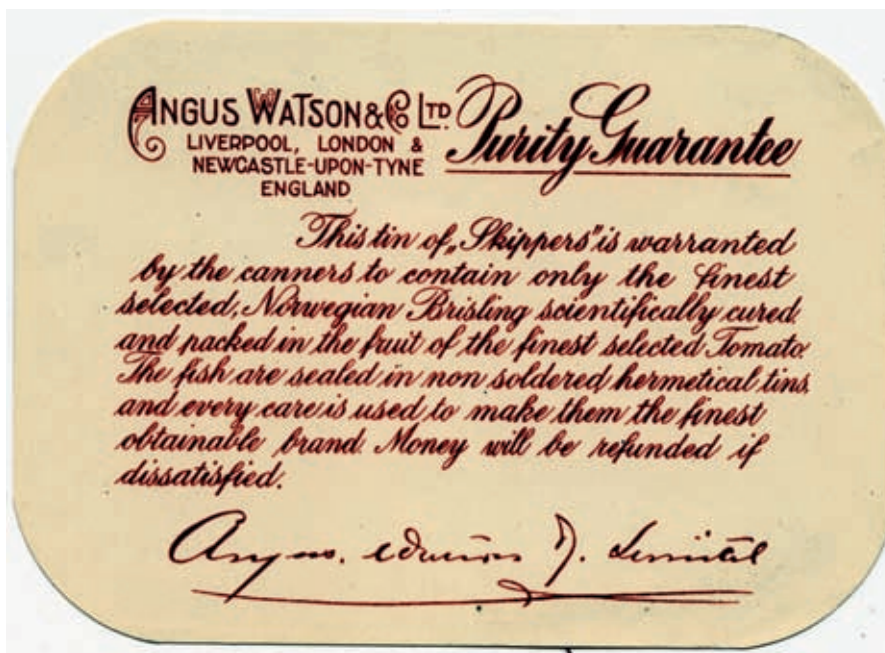 ANGUS WATSON & CO LTD.
LIVERPOOL, LONDON &
NEWCASTLE-UPON-TYNE
ENGLAND
Purity Guarantee
This tin of „Skippers" is warranted
by the canners to contain only the finest
selected, Norwegian Brisling scientifically cured
and packed in the fruit of the finest selected Tomato.
The fish are sealed in non soldered hermetical tins,
and every care is used to make them the finest
obtainable brand. Money will be refunded if
dissatisfied.
Angus. Watson & Limited